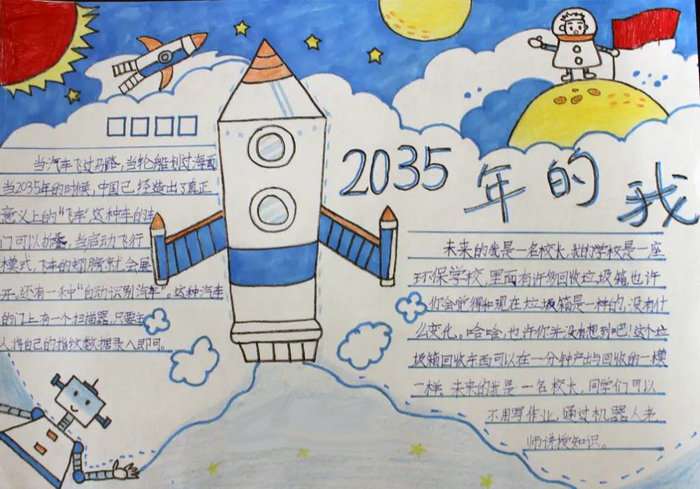 2035年的我
当汽车飞过马路,当轮船划过海面
当2035年的时候,中国已经造出了真正
意义上的"飞车",这种车的
门可以折叠,当启动飞行
模式,飞车的翅膀就会展
开,还有一种"自动识别汽车"。这种汽车
的门上有一个扫描器,只要
人将自己的指纹数据录入即可。
未来的我是一名校长,我的学校是一座
环保学校,里面有许多回收垃圾箱也许
你会觉得和现在垃圾箱是一样的,没有什
么变化。哈哈,也许你并没有想到吧!这个垃
圾箱回收东西可以在一分钟产出与回收的一模
一样 未来的我是一名校长,同学们可以
不用写作业,通过机器人老
师讲授知识。